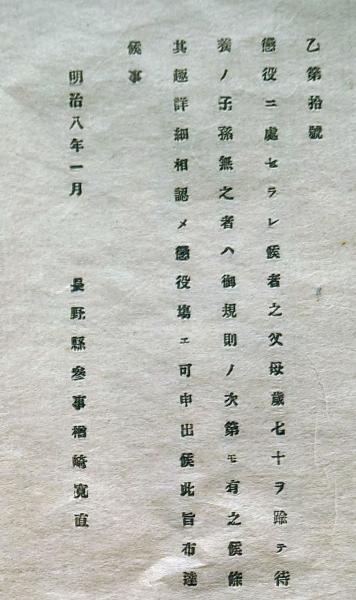 乙第拾號
懲役ニ處セラレ候者之父母歳七十ヲ踰テ待
養ノ子孫無之者ハ御規則ノ次第モ有之候條
其趣詳細相認メ懲役塲エ可申出候此旨布達
候事
明治八年一月　長野縣參事楢崎寛直